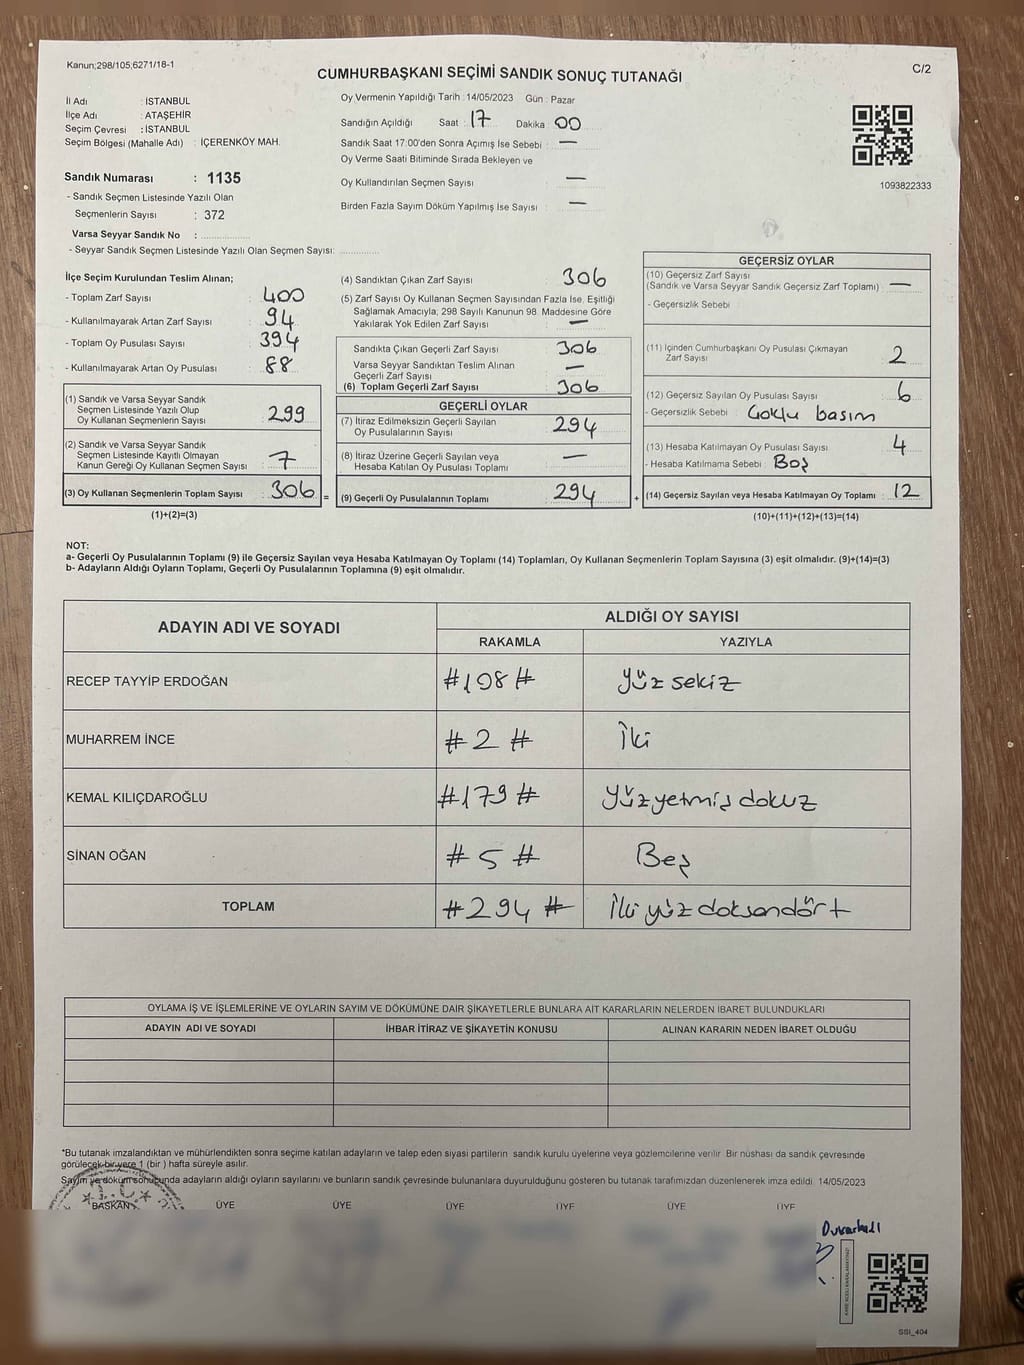 Kanun;298/105,6271/18-1
C/2
CUMHURBAŞKANI SEÇİMİ SANDIK SONUÇ TUTANAĞI
İl Adı : İSTANBUL
İlçe Adı : ATAŞEHİR
Seçim Çevresi : İSTANBUL
Seçim Bölgesi (Mahalle Adı) : İÇERENKÖY MAH.
Sandık Numarası : 1135
- Sandık Seçmen Listesinde Yazılı Olan
Seçmenlerin Sayısı : 372
Varsa Seyyar Sandık No :
- Seyyar Sandık Seçmen Listesinde Yazılı Olan Seçmen Sayısı:
Oy Vermenin Yapıldığı Tarih : 14/05/2023 Gün : Pazar
Sandığın Açıldığı Saat : 17 Dakika : 00
Sandık Saat 17:00'den Sonra Açımış İse Sebebi : —
Oy Verme Saati Bitiminde Sırada Bekleyen ve
Oy Kullandırılan Seçmen Sayısı : —
Birden Fazla Sayım Döküm Yapılmış İse Sayısı : —
1093822333
İlçe Seçim Kurulundan Teslim Alınan;
- Toplam Zarf Sayısı : 400
- Kullanılmayarak Artan Zarf Sayısı : 94
- Toplam Oy Pusulası Sayısı : 394
- Kullanılmayarak Artan Oy Pusulası : 88
(1) Sandık ve Varsa Seyyar Sandık
Seçmen Listesinde Yazılı Olup
Oy Kullanan Seçmenlerin Sayısı : 299
(2) Sandık ve Varsa Seyyar Sandık
Seçmen Listesinde Kayıtlı Olmayan
Kanun Gereği Oy Kullanan Seçmen Sayısı : 7
(3) Oy Kullanan Seçmenlerin Toplam Sayısı : 306 =
(1)+(2)=(3)
(4) Sandıktan Çıkan Zarf Sayısı : 306
(5) Zarf Sayısı Oy Kullanan Seçmen Sayısından Fazla İse, Eşitliği
Sağlamak Amacıyla; 298 Sayılı Kanunun 98. Maddesine Göre
Yakılarak Yok Edilen Zarf Sayısı : —
Sandıkta Çıkan Geçerli Zarf Sayısı : 306
Varsa Seyyar Sandıktan Teslim Alınan
Geçerli Zarf Sayısı : —
(6) Toplam Geçerli Zarf Sayısı : 306
GEÇERLİ OYLAR
(7) İtiraz Edilmeksizin Geçerli Sayılan
Oy Pusulalarının Sayısı : 294
(8) İtiraz Üzerine Geçerli Sayılan veya
Hesaba Katılan Oy Pusulası Toplamı : —
(9) Geçerli Oy Pusulalarının Toplamı : 294 +
GEÇERSİZ OYLAR
(10) Geçersiz Zarf Sayısı
(Sandık ve Varsa Seyyar Sandık Geçersiz Zarf Toplamı) : —
- Geçersizlik Sebebi :
(11) İçinden Cumhurbaşkanı Oy Pusulası Çıkmayan
Zarf Sayısı : 2
(12) Geçersiz Sayılan Oy Pusulası Sayısı : 6
- Geçersizlik Sebebi : Çoklu basım
(13) Hesaba Katılmayan Oy Pusulası Sayısı : 4
- Hesaba Katılmama Sebebi : Boş
(14) Geçersiz Sayılan veya Hesaba Katılmayan Oy Toplamı : 12
(10)+(11)+(12)+(13)=(14)
NOT:
a- Geçerli Oy Pusulalarının Toplamı (9) ile Geçersiz Sayılan veya Hesaba Katılmayan Oy Toplamı (14) Toplamları, Oy Kullanan Seçmenlerin Toplam Sayısına (3) eşit olmalıdır. (9)+(14)=(3)
b- Adayların Aldığı Oyların Toplamı, Geçerli Oy Pusulalarının Toplamına (9) eşit olmalıdır.
ADAYIN ADI VE SOYADI
ALDIĞI OY SAYISI
RAKAMLA YAZIYLA
RECEP TAYYİP ERDOĞAN #108# Yüz sekiz
MUHARREM İNCE #2# İki
KEMAL KILIÇDAROĞLU #179# Yüzyetmiş dokuz
SİNAN OĞAN #5# Beş
TOPLAM #294# İki yüz doksandört
OYLAMA İŞ VE İŞLEMLERİNE VE OYLARIN SAYIM VE DÖKÜMÜNE DAİR ŞİKAYETLERLE BUNLARA AİT KARARLARIN NELERDEN İBARET BULUNDUKLARI
ADAYIN ADI VE SOYADI İHBAR İTİRAZ VE ŞİKAYETİN KONUSU ALINAN KARARIN NEDEN İBARET OLDUĞU
*Bu tutanak imzalandıktan ve mühürlendikten sonra seçime katılan adayların ve talep eden siyasi partilerin sandık kurulu üyelerine veya gözlemcilerine verilir. Bir nüshası da sandık çevresinde
görülecek bir yere 1 (bir ) hafta süreyle asılır.
Sayım ve döküm sonucunda adayların aldığı oyların sayılarını ve bunların sandık çevresinde bulunanlara duyurulduğunu gösteren bu tutanak tarafımızdan düzenlenerek imza edildi. 14/05/2023
T.C.
BAŞKAN ÜYE ÜYE ÜYE ÜYE ÜYE ÜYE
SSI_404